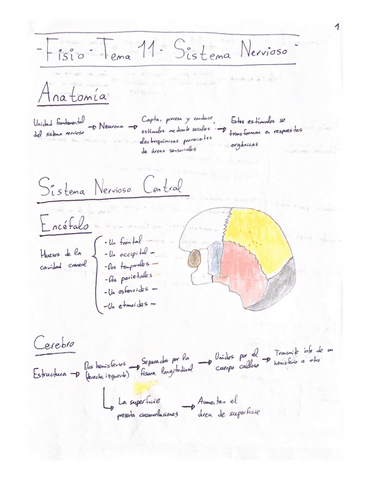 1
- Fisio - Tema 11 - Sistema Nervioso -
Anatomía
Unidad fundamental
del sistema nervioso
→ Neurona →
Capta, procesa y conduce
estímulos mediante señales
electroquímicas provenientes
de áreas sensoriales
→
Estos estímulos se
transforman en respuestas
orgánicas
Sistema Nervioso Central
Encéfalo
Huesos de la
cavidad craneal
- Un frontal -
- Un occipital -
- Dos temporales -
- Dos parietales
- Un esfenoides -
- Un etmoides -
Cerebro
Estructura →
Dos hemisferios
(derecho, izquierdo)
→
Separados por la
fisura longitudinal
→
Unidos por el
cuerpo calloso
→
Transmite info de un
hemisferio a otro
La superficie
presenta circunvoluciones
→
Aumentan el
área de superficie